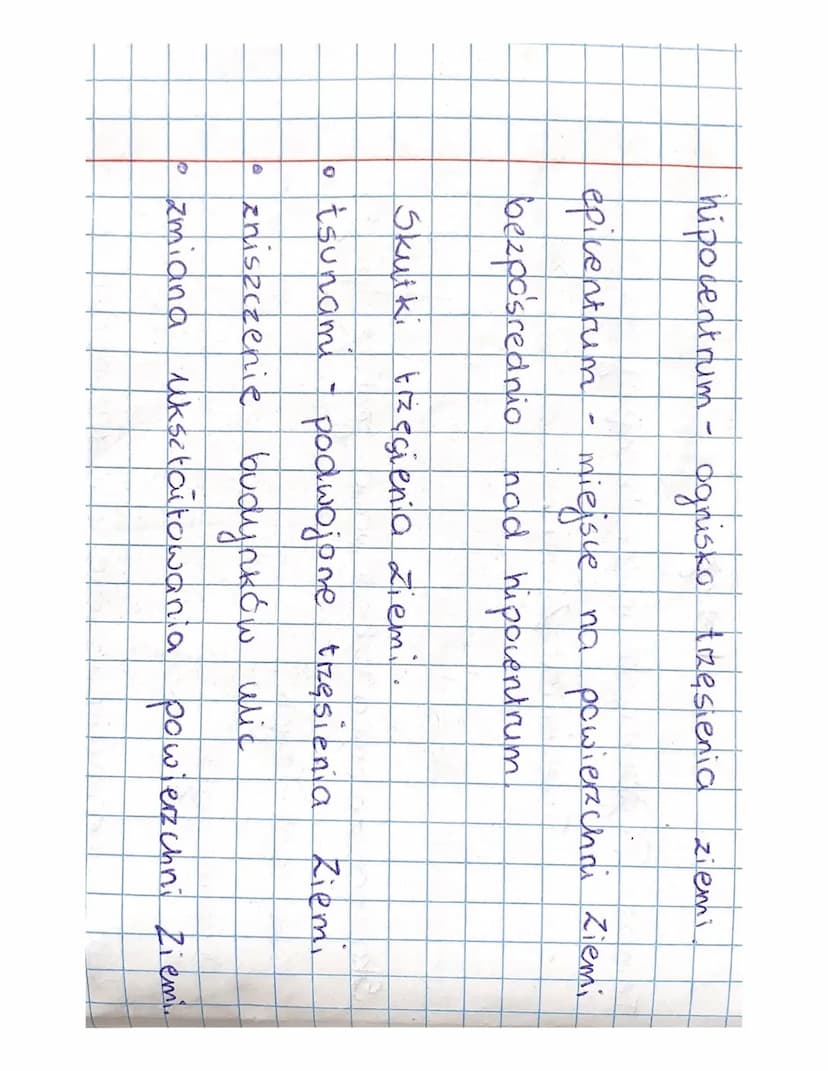 hipocentrum - ognisko trzęsienia ziemi.
epicentrum - miejsce na powierzchni Ziemi
bezpośrednio nad hipocentrum.
Skutki trzęsienia Ziemi.
• tsunami - podwojone trzęsienia Ziemi
• zniszczenie budynków ulic
• zmiana ukształtowania powierzchni Ziemi.